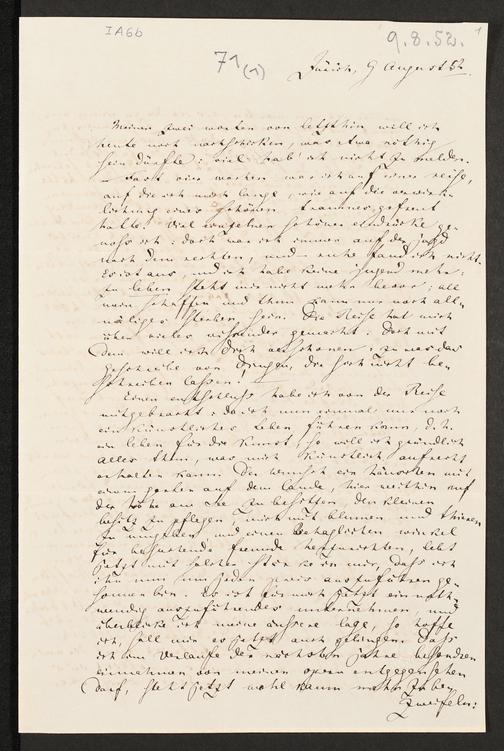 IA6b
9.8.52.
1
71(1)
Zürich, 9 August 52.
Meinen zwei worten von letzthin will ich
heute noch nachschicken, was etwa nöthig
sein dürfte: viel hab' ich nicht zu melden.
Fast vier wochen war ich auf einer reise,
auf die ich mich lange, wie auf die verwirk-
lichung eines schönen traumes gefreut
hatte. Viel einzelne schöne eindrücke ge-
noss ich: doch war ich immer auf der jagd
nach dem rechten, und ruhe fand ich nicht.
Es ist aus, und ich habe keine jugend mehr:
zu leben steht mir nicht mehr bevor; all
mein schaffen und thun kann nur noch all-
mäliges sterben sein. Die Reise hat mich
über vieles
gemacht: doch mit
dem will ich Dich verschonen:
geschreibe von Dingen, die sich nicht be-
schreiben lassen!
Einen entschluss habe ich von der Reise
mitgebracht: da ich nun einmal nur noch
ein künstlerisches Leben führen kann, d. h.
ein leben für die kunst, so will ich gründlich
alles thun, was mich künstlich aufrecht
erhalten kann: Der wunsch ein häuschen mit
auf dem lande, hier
auf
der höhe am See zu besitzen, den kleinen
besitz zu pflegen, mich mit blumen und thieren
zu umgeben, und einen behaglichen winkel
für besuchende freunde herzurichten, lebt
jetzt mit solcher stärke in mir, dass ich
ihn nun um jeden preis auszuführen ge-
sonnen bin. Es ist für mich jetzt ein noth-
wendig auszuführendes unternehmen, und
überblicke ich meine äussere lage, so hoffe
ich, soll mir es jetzt auch gelingen. Dass
ich im Verlaufe der nächsten jahre besondren
einnahmen von meinen opern entgegensehen
darf, steht jetzt wohl kaum mehr
zweifeln: